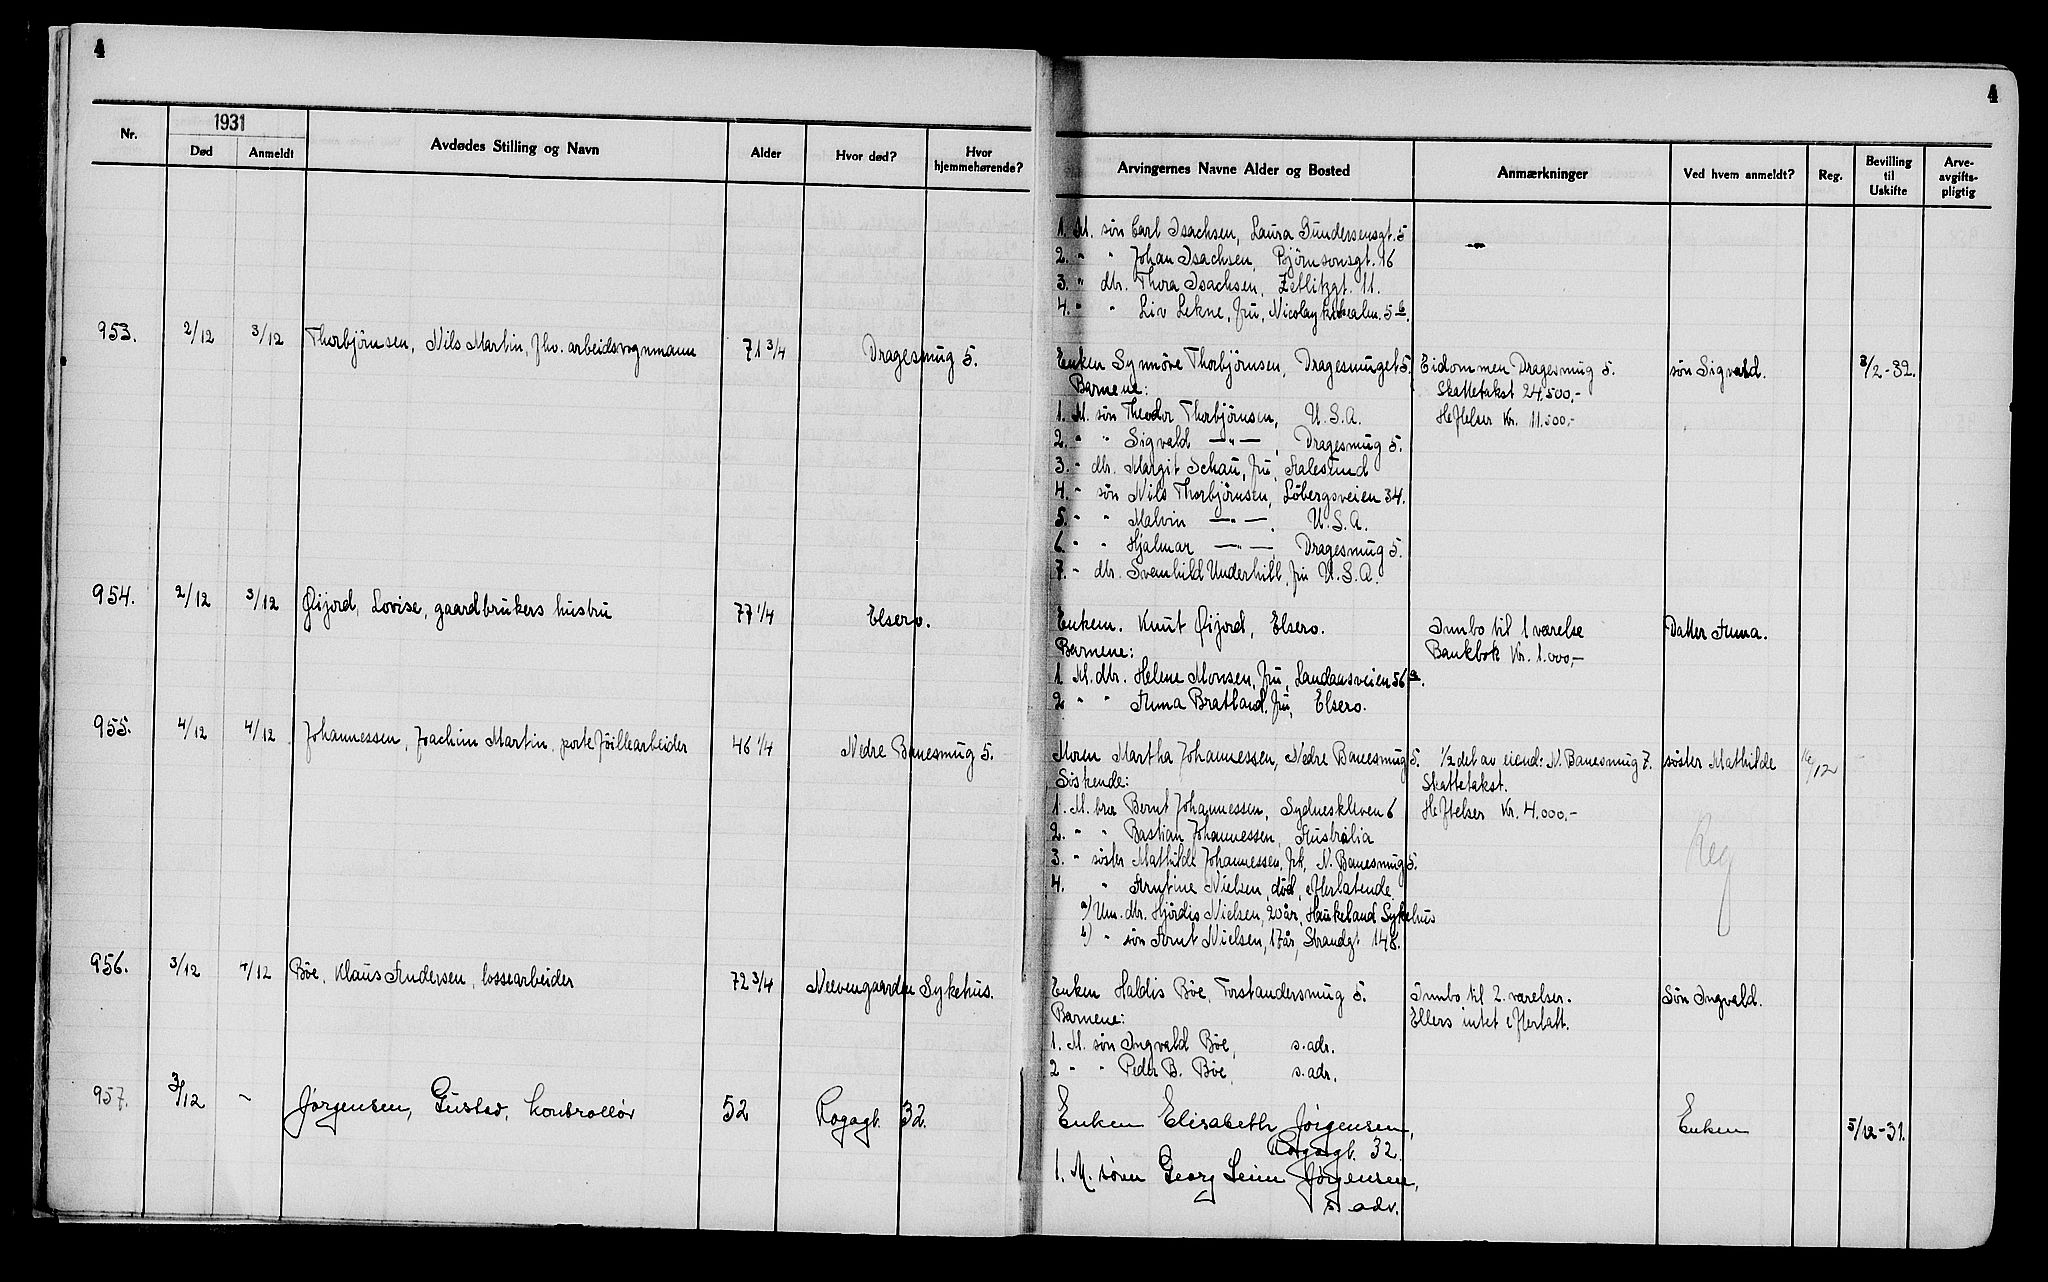 4
4
Nr.
1931
Død
Anmeldt
Avdødes Stilling og Navn
Alder
Hvor død?
Hvor hjemmehørende?
Arvingernes Navne Alder og Bosted
Anmærkninger
Ved hvem anmeldt?
Reg.
Bevilling til Uskifte
Arve-avgifts-pligtig
1. M. søn Carl Isachsen, Laura Gundersensgt. 5
2. " " Johan Isachsen, Bjørnsonsgt. 16
3. " dtr. Thora Isachsen, Zetlitzgt. 11.
4. " " Liv Lekne, fru, Nicolaykirkealm. 5 b.
953. 2/12 3/12 Thorbjørnsen, Nils Martin, fhv. arbeidsvognmann 71 3/4 Dragesmug 5.
Enken Synnøve Thorbjørnsen, Dragesmuget 5. Eidommen Dragesmug 5. søn Sigvald. 3/2-32.
Barnene: Skattetakst 24.500,-
1. M. søn Theodor Thorbjørnsen, U.S.A. Heftelser Kr. 11.500,-
2. " " Sigvald —"— , Dragesmug 5.
3. " dtr. Margit Schau, fru, Aalesund
4. " søn Nils Thorbjørnsen, Løbergsveien 34.
5. " " Malvin —"— , U.S.A.
6. " " Hjalmar —"— , Dragesmug 5.
7. " dtr. Svanhild Underhill, fru U.S.A.
954. 2/12 3/12 Øijord, Lovise, gaardbrukers hustru 77 1/4 Elsero.
Enkem. Knut Øijord, Elsero. Innbo til 1 værelse Datter Anna.
Barnene: Bankbok Kr. 1.000,-
1 M. dtr. Helene Monsen, fru, Landaasveien 56 a.
2 " " Anna Bratland, fru, Elsero.
955. 4/12 4/12 Johannessen, Joachim Martin, portefóillearbeider 46 1/4 Nedre Banesmug 5.
Moren Martha Johannessen, Nedre Banesmug 5. 1/2 del av eiend: N. Banesmug 7. søster Mathilde 16/12
Søskende: Skattetakst.
1. M. bror Bernt Johannessen, Sydneskleven 6 Heftelser Kr. 4.000,-
2. " " Bastian Johannessen, Australia
Reg
3. " søster Mathilde Johannessen, frk, N. Banesmug 5.
4. " Arntine Nielsen, død, efterlatende
a) Um. dtr. Hjørdis Nielsen, 20 år, Haukeland Sykehus
b) " søn Arnt Nielsen, 17 år, Strandgt 148.
956. 3/12 4/12 Bøe, Klaus Andersen, lossearbeider 72 3/4 Neevengaarden Sykehus.
Enken Haldis Bøe, Forstandersmug 5. Innbo til 2. værelser. Søn Ingvald.
Barnene: Ellers intet efterlatt.
1. M. søn Ingvald Bøe, s. adr.
2 " " Peder B. Bøe, s. adr.
957. 3/12 - Jørgensen, Gustav, kontrollør 52 Rogagt. 32.
Enken Elisabeth Jørgensen, Enken 5/12-31.
Rogagt. 32.
1. M. sønn Georg Seim Jørgensen,
s. adr.